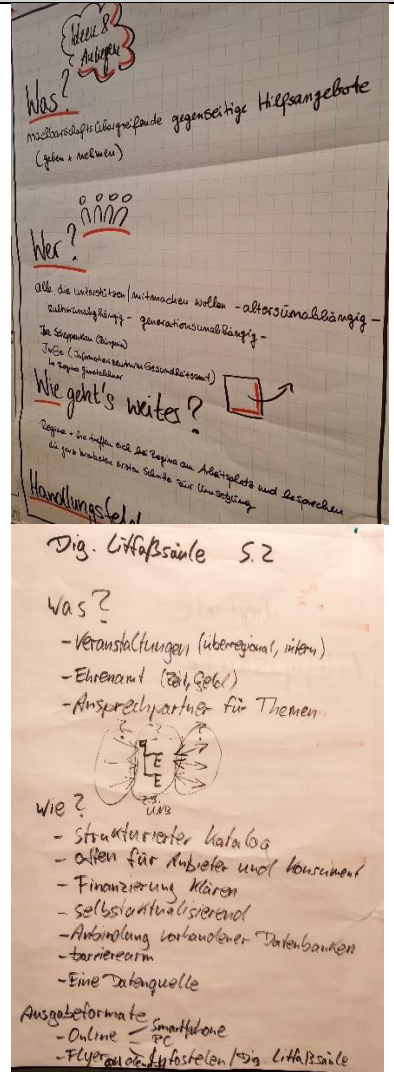 Ideen &
Anliegen
Was?
nachbarschaftsübergreifende gegenseitige Hilfsangebote
(geben + nehmen)
Wer?
alle die unterstützen/mitmachen wollen - altersunabhängig -
kulturunabhängig - generationsunabhängig -
(Informationszentrum Gesundheitsamt)
Wie geht's weiter?
Regina + Ine treffen sich bei Regina am Arbeitsplatz und besprechen
die ganz konkreten ersten Schritte zur Umsetzung
Dig. Litfaßsäule S.2
Was?
- Veranstaltungen (überregional, intern)
- Ehrenamt (Zeit, Geld)
- Ansprechpartner für Themen
E
E
Wie?
- strukturierter Katalog
- offen für Anbieter und Konsument
- Finanzierung klären
- selbstaktualisierend
- Anbindung vorhandener Datenbanken
- barrierearm
- Eine Datenquelle
Ausgabeformate
- Online - Smartphone
- PC
- Flyer an den Infostelen/Dig. Litfaßsäule